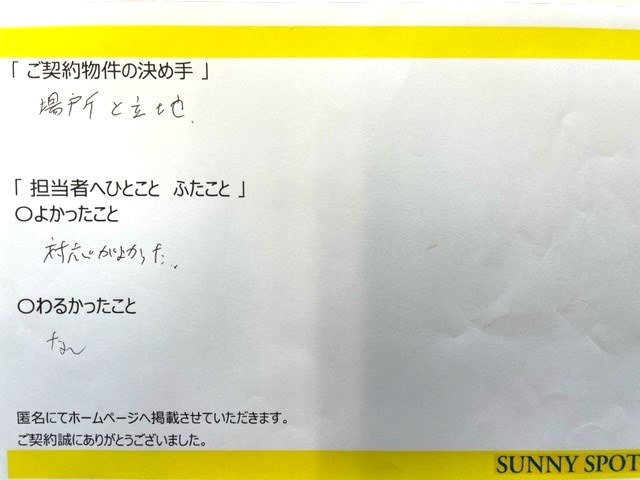 「 ご契約物件の決め手 」
場所と立地.
「 担当者へひとこと ふたこと 」
〇よかったこと
対応がよかった.
〇わるかったこと
なし
匿名にてホームページへ掲載させていただきます。
ご契約誠にありがとうございました。
SUNNY SPOT